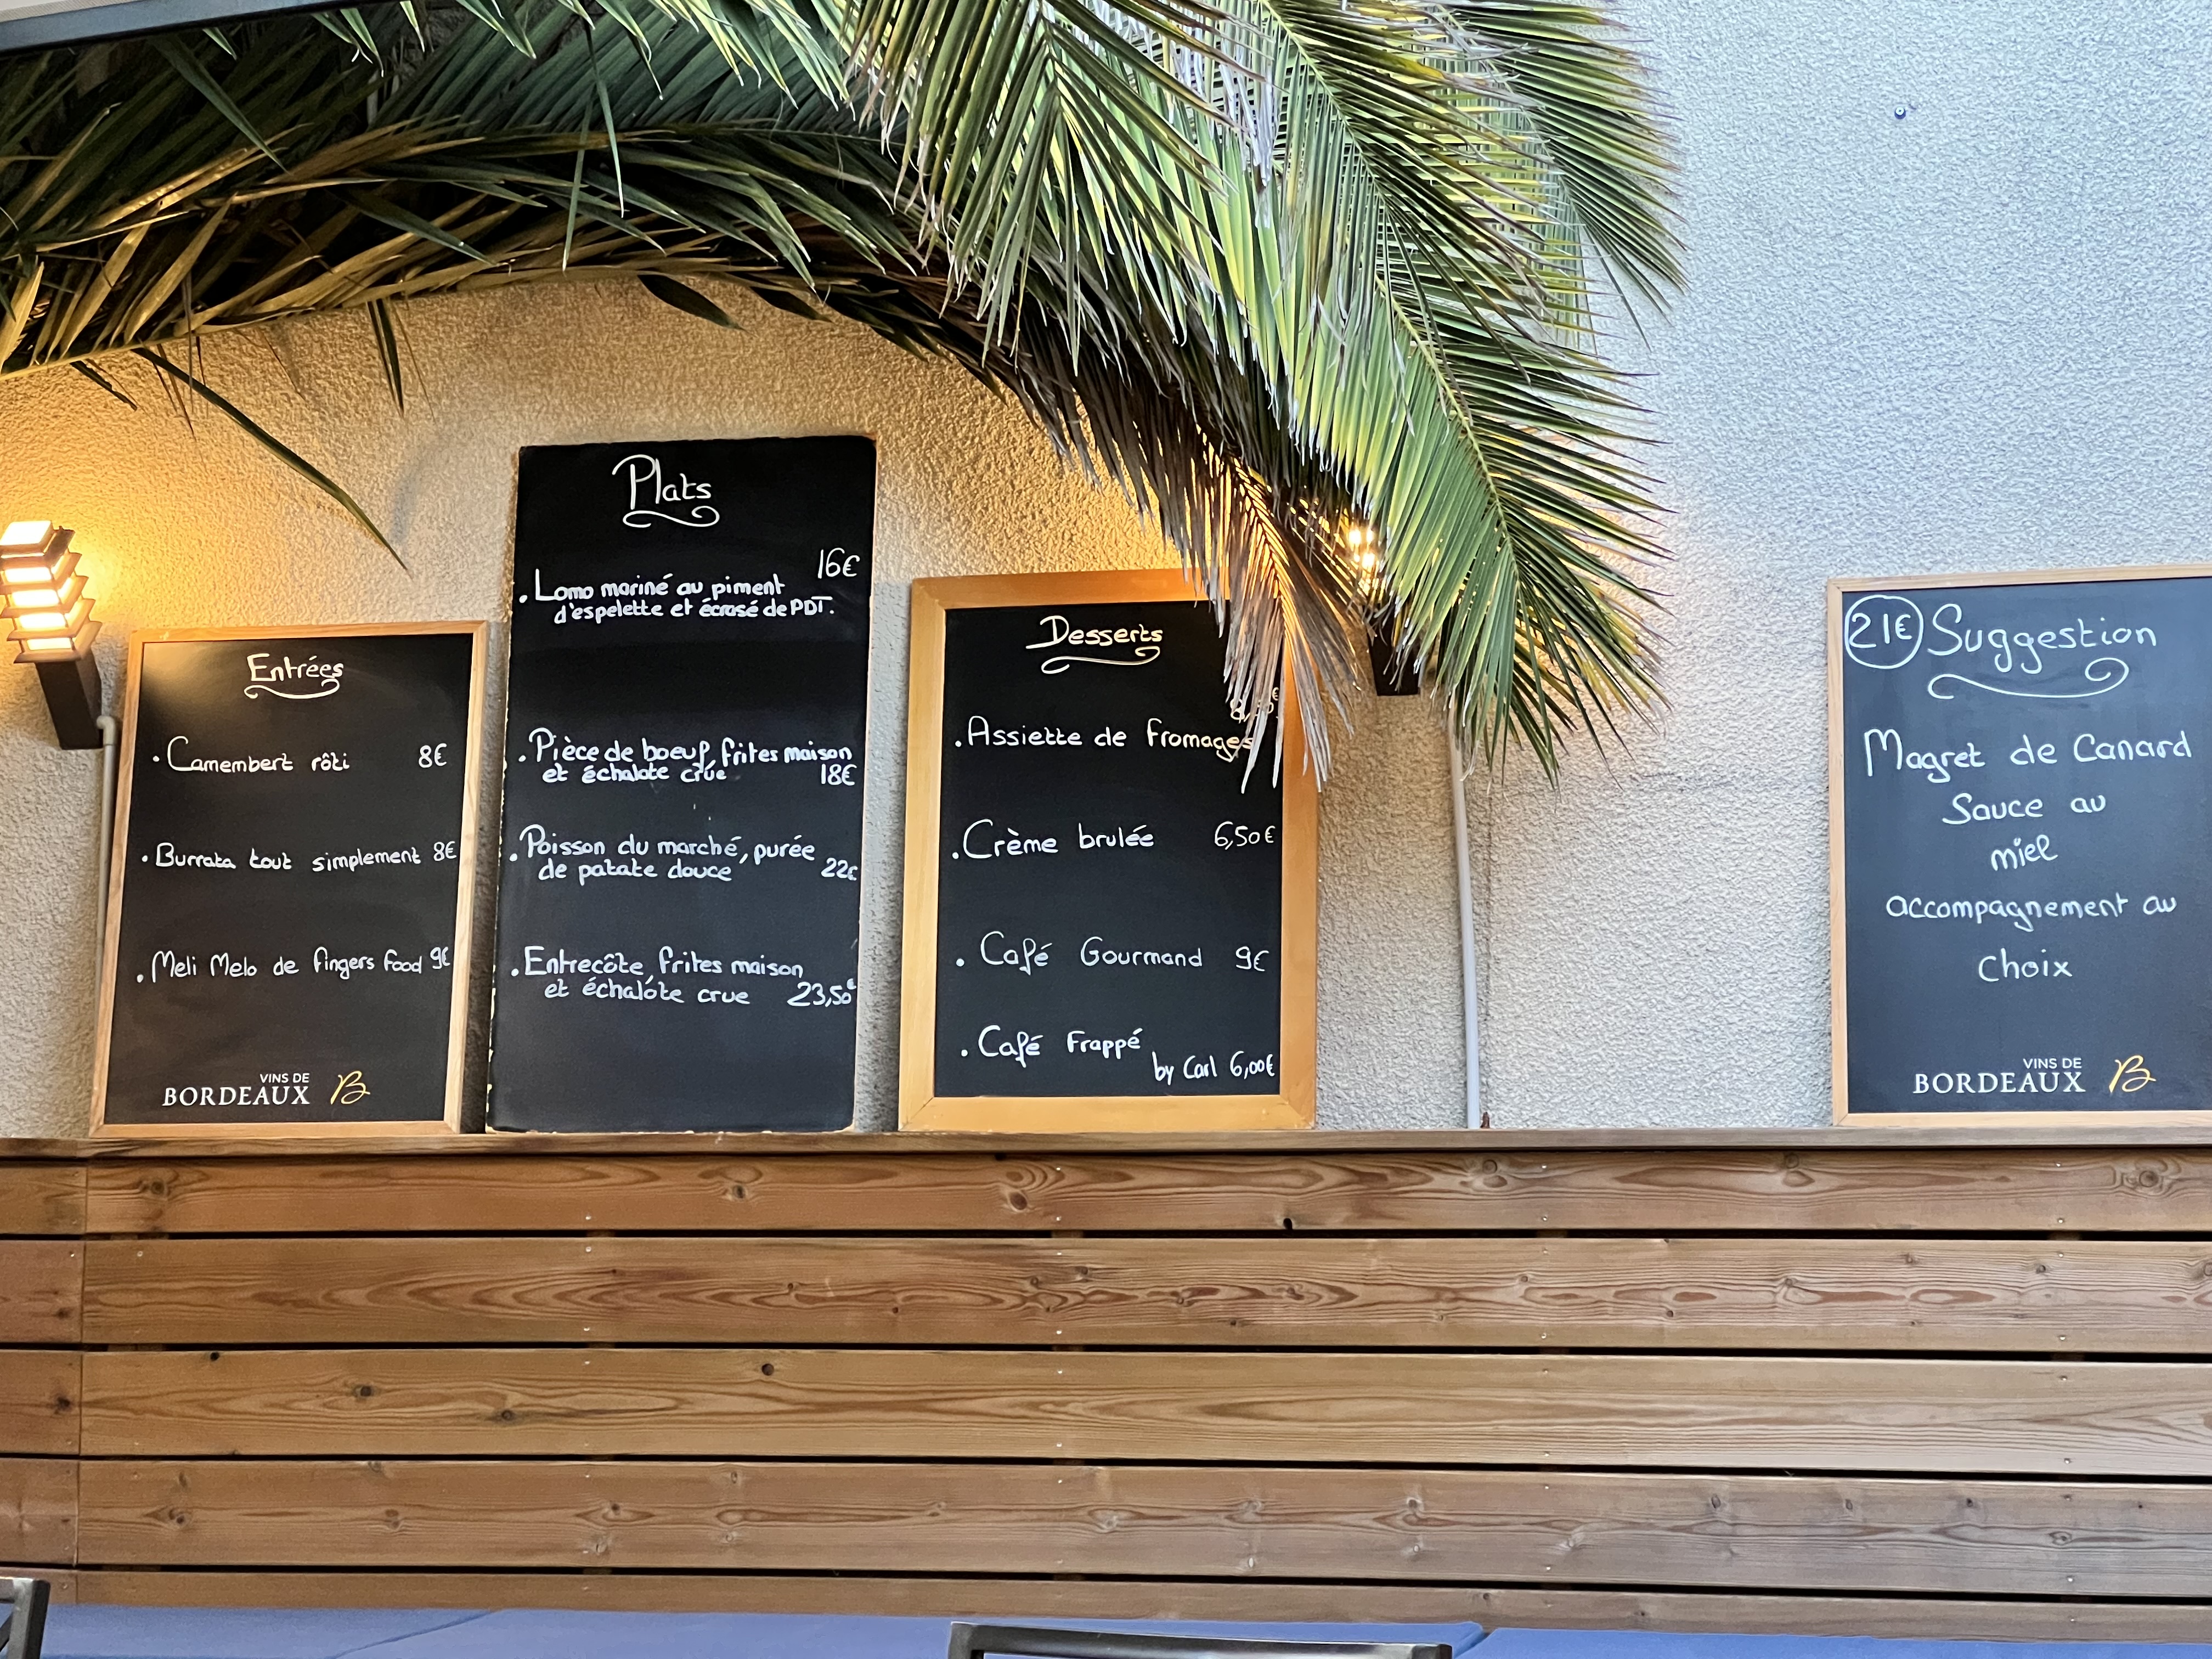 Entrées
. Camembert rôti 8€
. Burrata tout simplement 8€
. Meli Melo de fingers food 9€
VINS DE
BORDEAUX B
Plats
16€
. Lomo mariné au piment
d'espelette et écrasé de PDT.
. Pièce de boeuf, frites maison
et échalote crue 18€
. Poisson du marché, purée
de patate douce 22€
. Entrecôte, frites maison
et échalôte crue 23,50€
Desserts
. Assiette de fromages
. Crème brulée 6,50€
. Café Gourmand 9€
. Café Frappé
by Carl 6,00€
21€ Suggestion
Magret de Canard
Sauce au
miel
accompagnement au
choix
VINS DE
BORDEAUX B